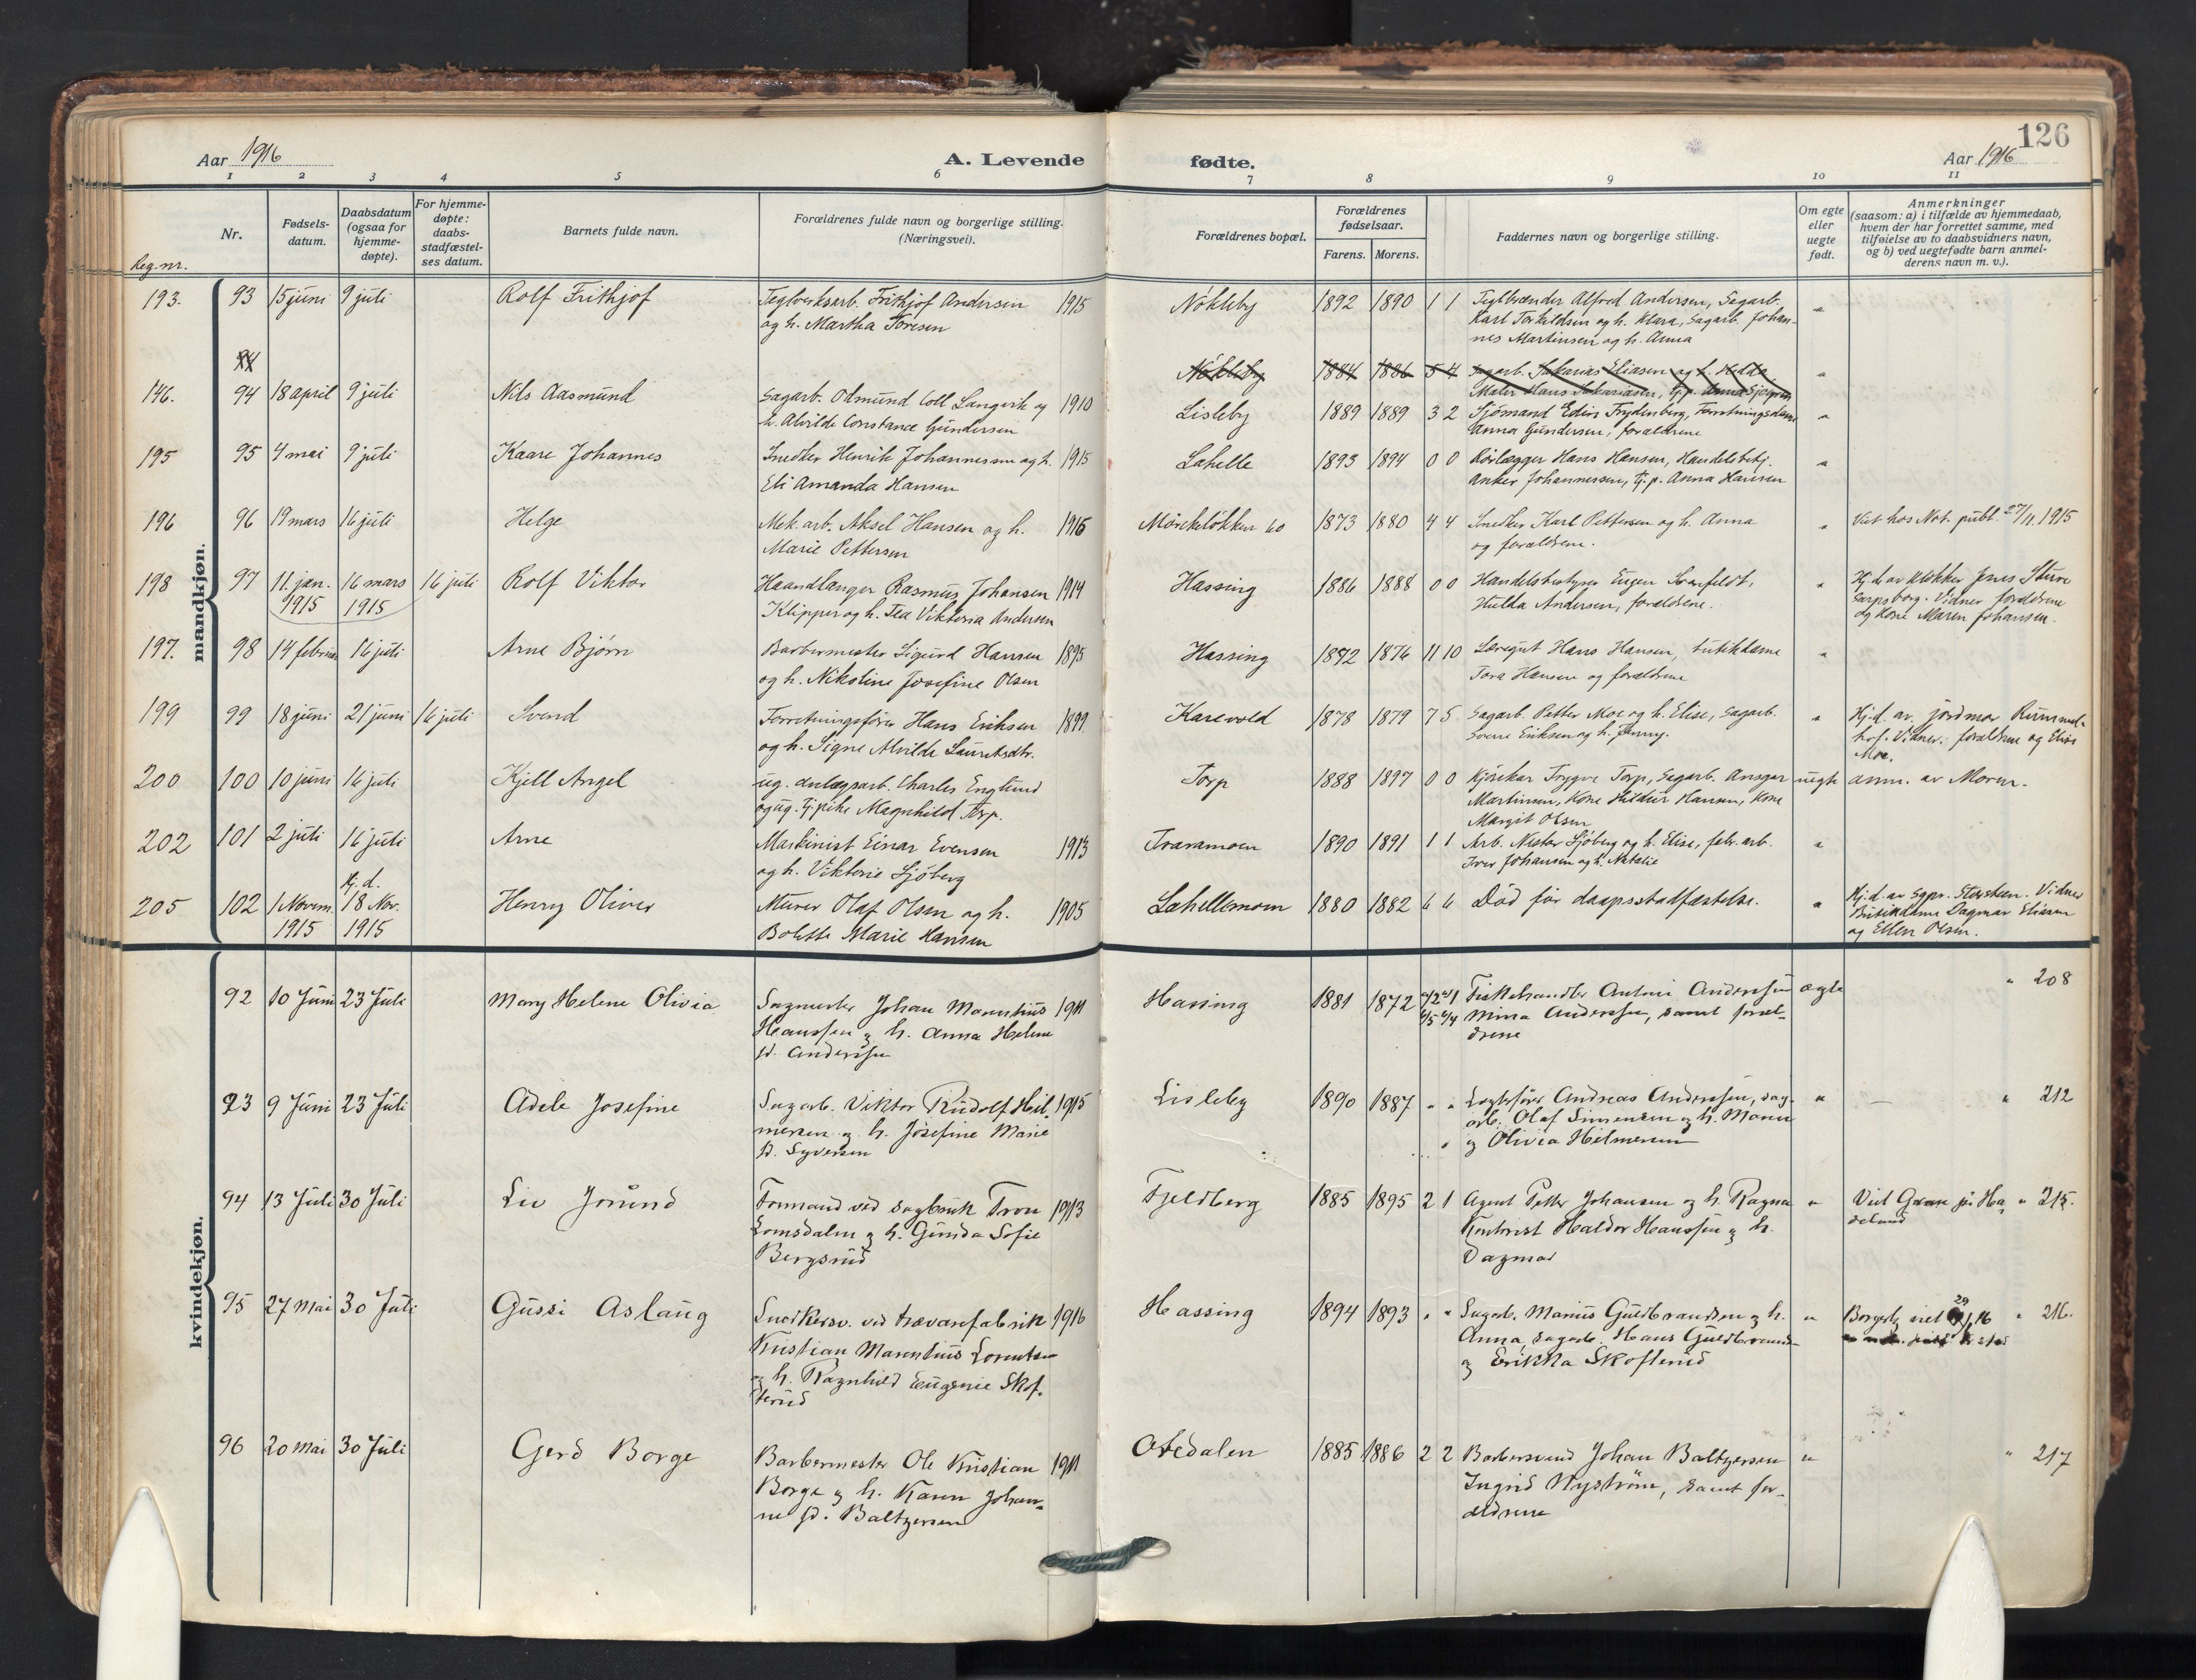 Aar 1916
A. Levende fødte.
Aar 1916
126
1 2 3 4 5 6 7 8 9 10 11
Reg.nr.
Nr.
Fødsels-
datum.
Daabsdatum
(ogsaa for
hjemme-
døpte).
For hjemme-
døpte:
daabs-
stadfæstel-
ses datum.
Barnets fulde navn.
Forældrenes fulde navn og borgerlige stilling.
(Næringsvei).
Forældrenes bopæl.
Forældrenes
fødselsaar.
Farens. Morens.
Faddernes navn og borgerlige stilling.
Om egte
eller
uegte
født.
Anmerkninger
(saasom: a) i tilfælde av hjemmedaab,
hvem der har forrettet samme, med
tilføielse av to daabsvidners navn,
og b) ved uegtefødte barn anmel-
derens navn m. v.).
mandkjøn.
193. 93 15 juni 9 juli Rolf Frithjof Teglverksarb. Frithjof Andersen 1915 Nökleby 1892 1890 1 1 Teglbrænder Alfred Andersen, Sagarb. "
og h. Martha Toresen Karl Torkildsen og h. Klara, Sagarb. Johan-
nes Martinsen og h. Anna
94
Nökleby 1884 1886 5 4 Sagarb. Sakarias Eliasen og h. Hedda "
Maler Hans Sakariasen, tj.p. Anna
146. 94 18 april 9 juli Nils Aasmund Sagarb. Odmund Coll Langvik og 1910 Lisleby 1889 1889 3 2 Sjömand Edin Frydenberg, Forretningsdame "
h. Alvilde Constance Gundersen Anna Gundersen, forældrene
195 95 4 mai 9 juli Kaare Johannes Snedker Henrik Johannessen og h. 1915 Lahelle 1893 1894 0 0 Rörlægger Hans Hansen, Handelsbetj. "
Eli Amanda Hansen Anker Johannessen, tj.p. Anna Hansen
196 96 19 mars 16 juli Helge Mek. arb. Aksel Hansen og h. 1916 Mörkeløkken 60 1873 1880 4 4 Snedker Karl Pettersen og h. Anna " Viet hos Not. publ. 27/11 1915
Marie Pettersen og forældrene.
198 97 11. jan. 16 mars 16 juli Rolf Viktor Haandlanger Rasmus Johansen 1914 Hassing 1886 1888 0 0 Handelsbestyrer Eugen Svanfeldt, " Hj.d. av klokker Jens Sture
1915 1915 Klipper og h. Tea Viktoria Andersen Hulda Andersen, forældrene. Sarpsborg. Vidner forældrene
og Kone Maren Johansen.
197. 98 14 februar 16 juli Arne Bjørn Barbermester Sigurd Hansen 1895 Hassing 1872 1876 11 10 Læregut Hans Hansen, butikdame "
og h. Nikoline Josefine Olsen Tora Hansen og forældrene
199 99 18 juni 21 juni 16 juli Svend Forretningsfører Hans Eriksen 1899 Karevold 1878 1879 7 5 Sagarb. Petter Moe og h. Elise, Sagarb. " Hj.d. av jordmor Rummel-
og h. Signe Alvilde Lauritsdtr. Sverre Eriksen og h. Jenny. hof. Vidner: forældrene og Elise
Moe.
200 100 10 juni 16 juli Kjell Angel ug. anlægsarb. Charles Englund Torp 1888 1897 0 0 Kjörekar Trygve Torp, Sagarb. Ansgar uegte anm. av Moren.
og ug. tj.pike Magnhild Torp. Martinsen, Kone Hildur Hansen, Kone
Margit Olsen
202 101 2 juli 16 juli Arne Maskinist Einar Evensen 1913 Traramoen 1890 1891 1 1 Arb. Nestor Sjöberg og h. Elise, febr. arb. "
og h. Viktorie Sjöberg Iver Johansen og h. Natalie
Hj. d.
205 102 1 Novem. 18 Nov. Henry Oliver Murer Olaf Olsen og h. 1905 Lahellemoen 1880 1882 6 6 Död för daapsstadfæstelse. " Hj.d. av sgpr. Stersteen. Vidner
1915 1915 Bolette Marie Hansen Butikdame Dagmar Eliasen
og Ellen Olsen.
kvindekjøn.
92 10 Juni 23 Juli Mary Helene Olivia Sagmester Johan Marentius 1911 Hassing 1881 1872 Fiskehandler Antoni Anderssen ægte " 208
Hanssen og h. Anna Helene Mina Anderssen, samt foræl-
fd. Anderssen drene
93 9 Juni 23 Juli Adele Josefine Sagarb. Viktor Rudolf Hil- 1915 Lisleby 1890 1887 " " Logtefører Andreas Anderssen, sag- " — " 212
mersen og h. Josefine Marie arb. Olaf Simensen og h. Marie
fd. Syversen og Olivia Hilmersen
94 13 Juli 30 Juli Liv Jorund Formand ved sagbruk Tron 1913 Fjeldberg 1885 1895 2 1 Agent Petter Johansen og h. Ragna " Viet Gran på Ha- " 215.
Lomsdalen og h. Gunda Sofie Kontorist Haldor Hanssen og h. deland
Bergsrud Dagmar
95 27 Mai 30 Juli Gussi Aslaug Snedkersv. ved trævarefabrik 1916 Hassing 1894 1893 " " Sagarb. Marius Guldbrandsen og h. " Borgerlig viet 29/1 16 " 216.
Kristian Marentius Lorentsen Anna, sagarb. Hans Guldbrandsen
og h. Ragnhild Eugenie Skof- og Erikka Skofterud
terud
96 20 Mai 30 Juli Gerd Borge Barbermester Ole Kristian 1911 Oredalen 1885 1886 2 2 Barbersvend Johan Baltzersen " " 217
Borge og h. Karen Johan- Ingrid Nystrøm, samt for-
ne fd. Baltzersen ældrene